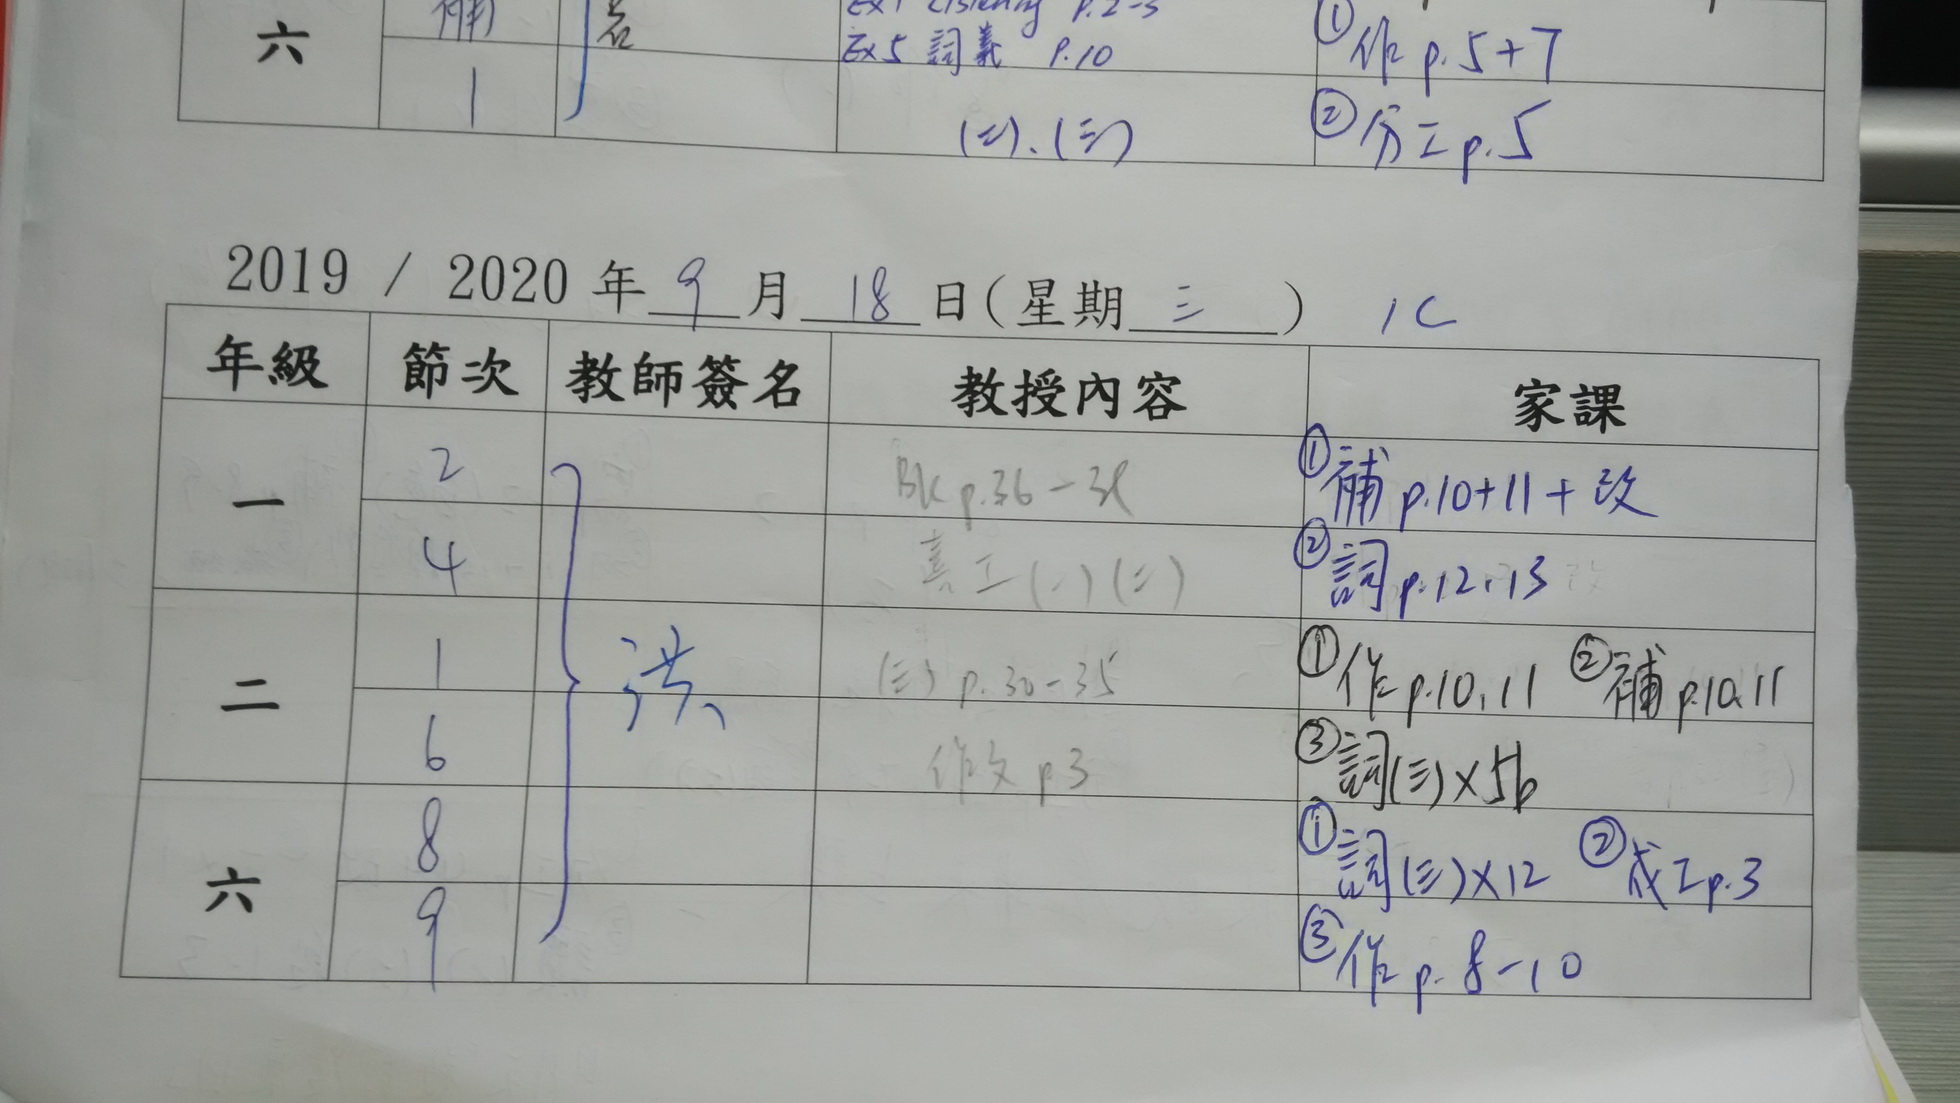 Ex1 Listening p.2-3
六 補 Ex5 詞義 P.10 ①作 p.5+7
1 (二).(三) ②分工p.5
2019 / 2020 年 9 月 18 日(星期 三 ) 1C
年級 節次 教師簽名 教授內容 家課
一 2 BK p.36-38 ①補 p.10+11+改
4 工(一)(二) ②詞p.12,13
二 1 洪 (三) p.30-35 ①作p.10,11 ②補p.10,11
6 作文 p3 ③詞(三)×5b
六 8 ①詞(三)×12 ②成工p.3
9 ③作p.8-10